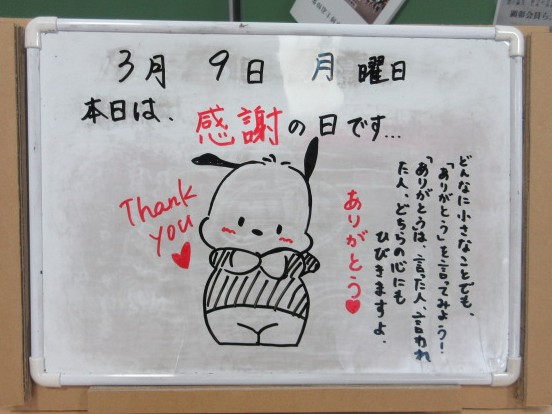 3月 9日 月曜日
本日は、感謝の日です...
Thank
you
ありがとう
どんなに小さなことでも、
「ありがとう」を言ってみよう!
「ありがとう」は、言った人、言われ
た人、どちらの心にも
ひびきますよ。